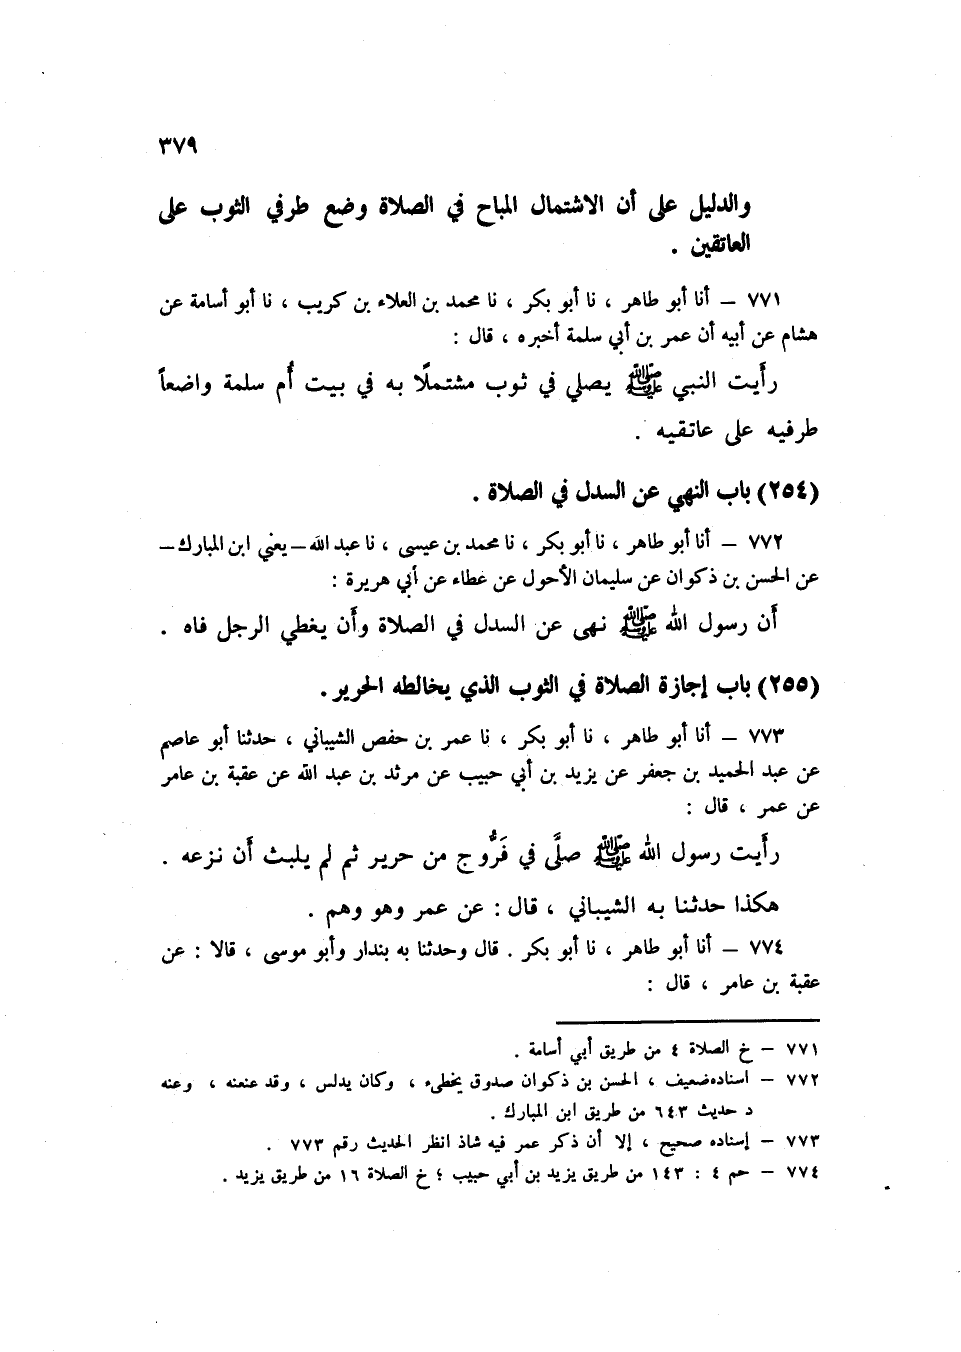 ٣٧٩
والدليل على أن الاشتمال المباح في الصلاة وضع طرفي الثوب على
العاتقين .
٧٧١ – أنا أبو طاهر ، نا أبو بكر ، نا محمد بن العلاء بن كريب ، نا أبو أسامة عن
هشام عن أبيه أن عمر بن أبي سلمة أخبره ، قال :
رأيت النبي ﷺ يصلي في ثوب مشتملًا به في بيت أُم سلمة واضعاً
طرفيه على عاتقيه .
(٢٥٤) باب النهي عن السدل في الصلاة .
٧٧٢ – أنا أبو طاهر ، نا أبو بكر ، نا محمد بن عيسى ، نا عبد الله – يعني ابن المبارك –
عن الحسن بن ذكوان عن سليمان الأحول عن عطاء عن أبي هريرة :
أن رسول الله ﷺ نهى عن السدل في الصلاة وأن يغطي الرجل فاه .
(٢٥٥) باب إجازة الصلاة في الثوب الذي يخالطه الحرير .
٧٧٣ – أنا أبو طاهر ، نا أبو بكر ، نا عمر بن حفص الشيباني ، حدثنا أبو عاصم
عن عبد الحميد بن جعفر عن يزيد بن أبي حبيب عن مرثد بن عبد الله عن عقبة بن عامر
عن عمر ، قال :
رأيت رسول الله ﷺ صلَّى في فَرُّوج من حرير ثم لم يلبث أن نزعه .
هكذا حدثنا به الشيباني ، قال : عن عمر وهو وهم .
٧٧٤ – أنا أبو طاهر ، نا أبو بكر . قال وحدثنا به بندار وأبو موسى ، قالا : عن
عقبة بن عامر ، قال :
٧٧١ – خ الصلاة ٤ من طريق أبي أسامة .
٧٧٢ – اسناده ضعيف ، الحسن بن ذكوان صدوق يخطىء ، وكان يدلس ، وقد عنعنه ، وعنه
د حديث ٦٤٣ من طريق ابن المبارك .
٧٧٣ – إسناده صحيح ، إلا أن ذكر عمر فيه شاذ انظر الحديث رقم ٧٧٣ .
٧٧٤ – حم ٤ : ١٤٣ من طريق يزيد بن أبي حبيب ؛ خ الصلاة ١٦ من طريق يزيد .